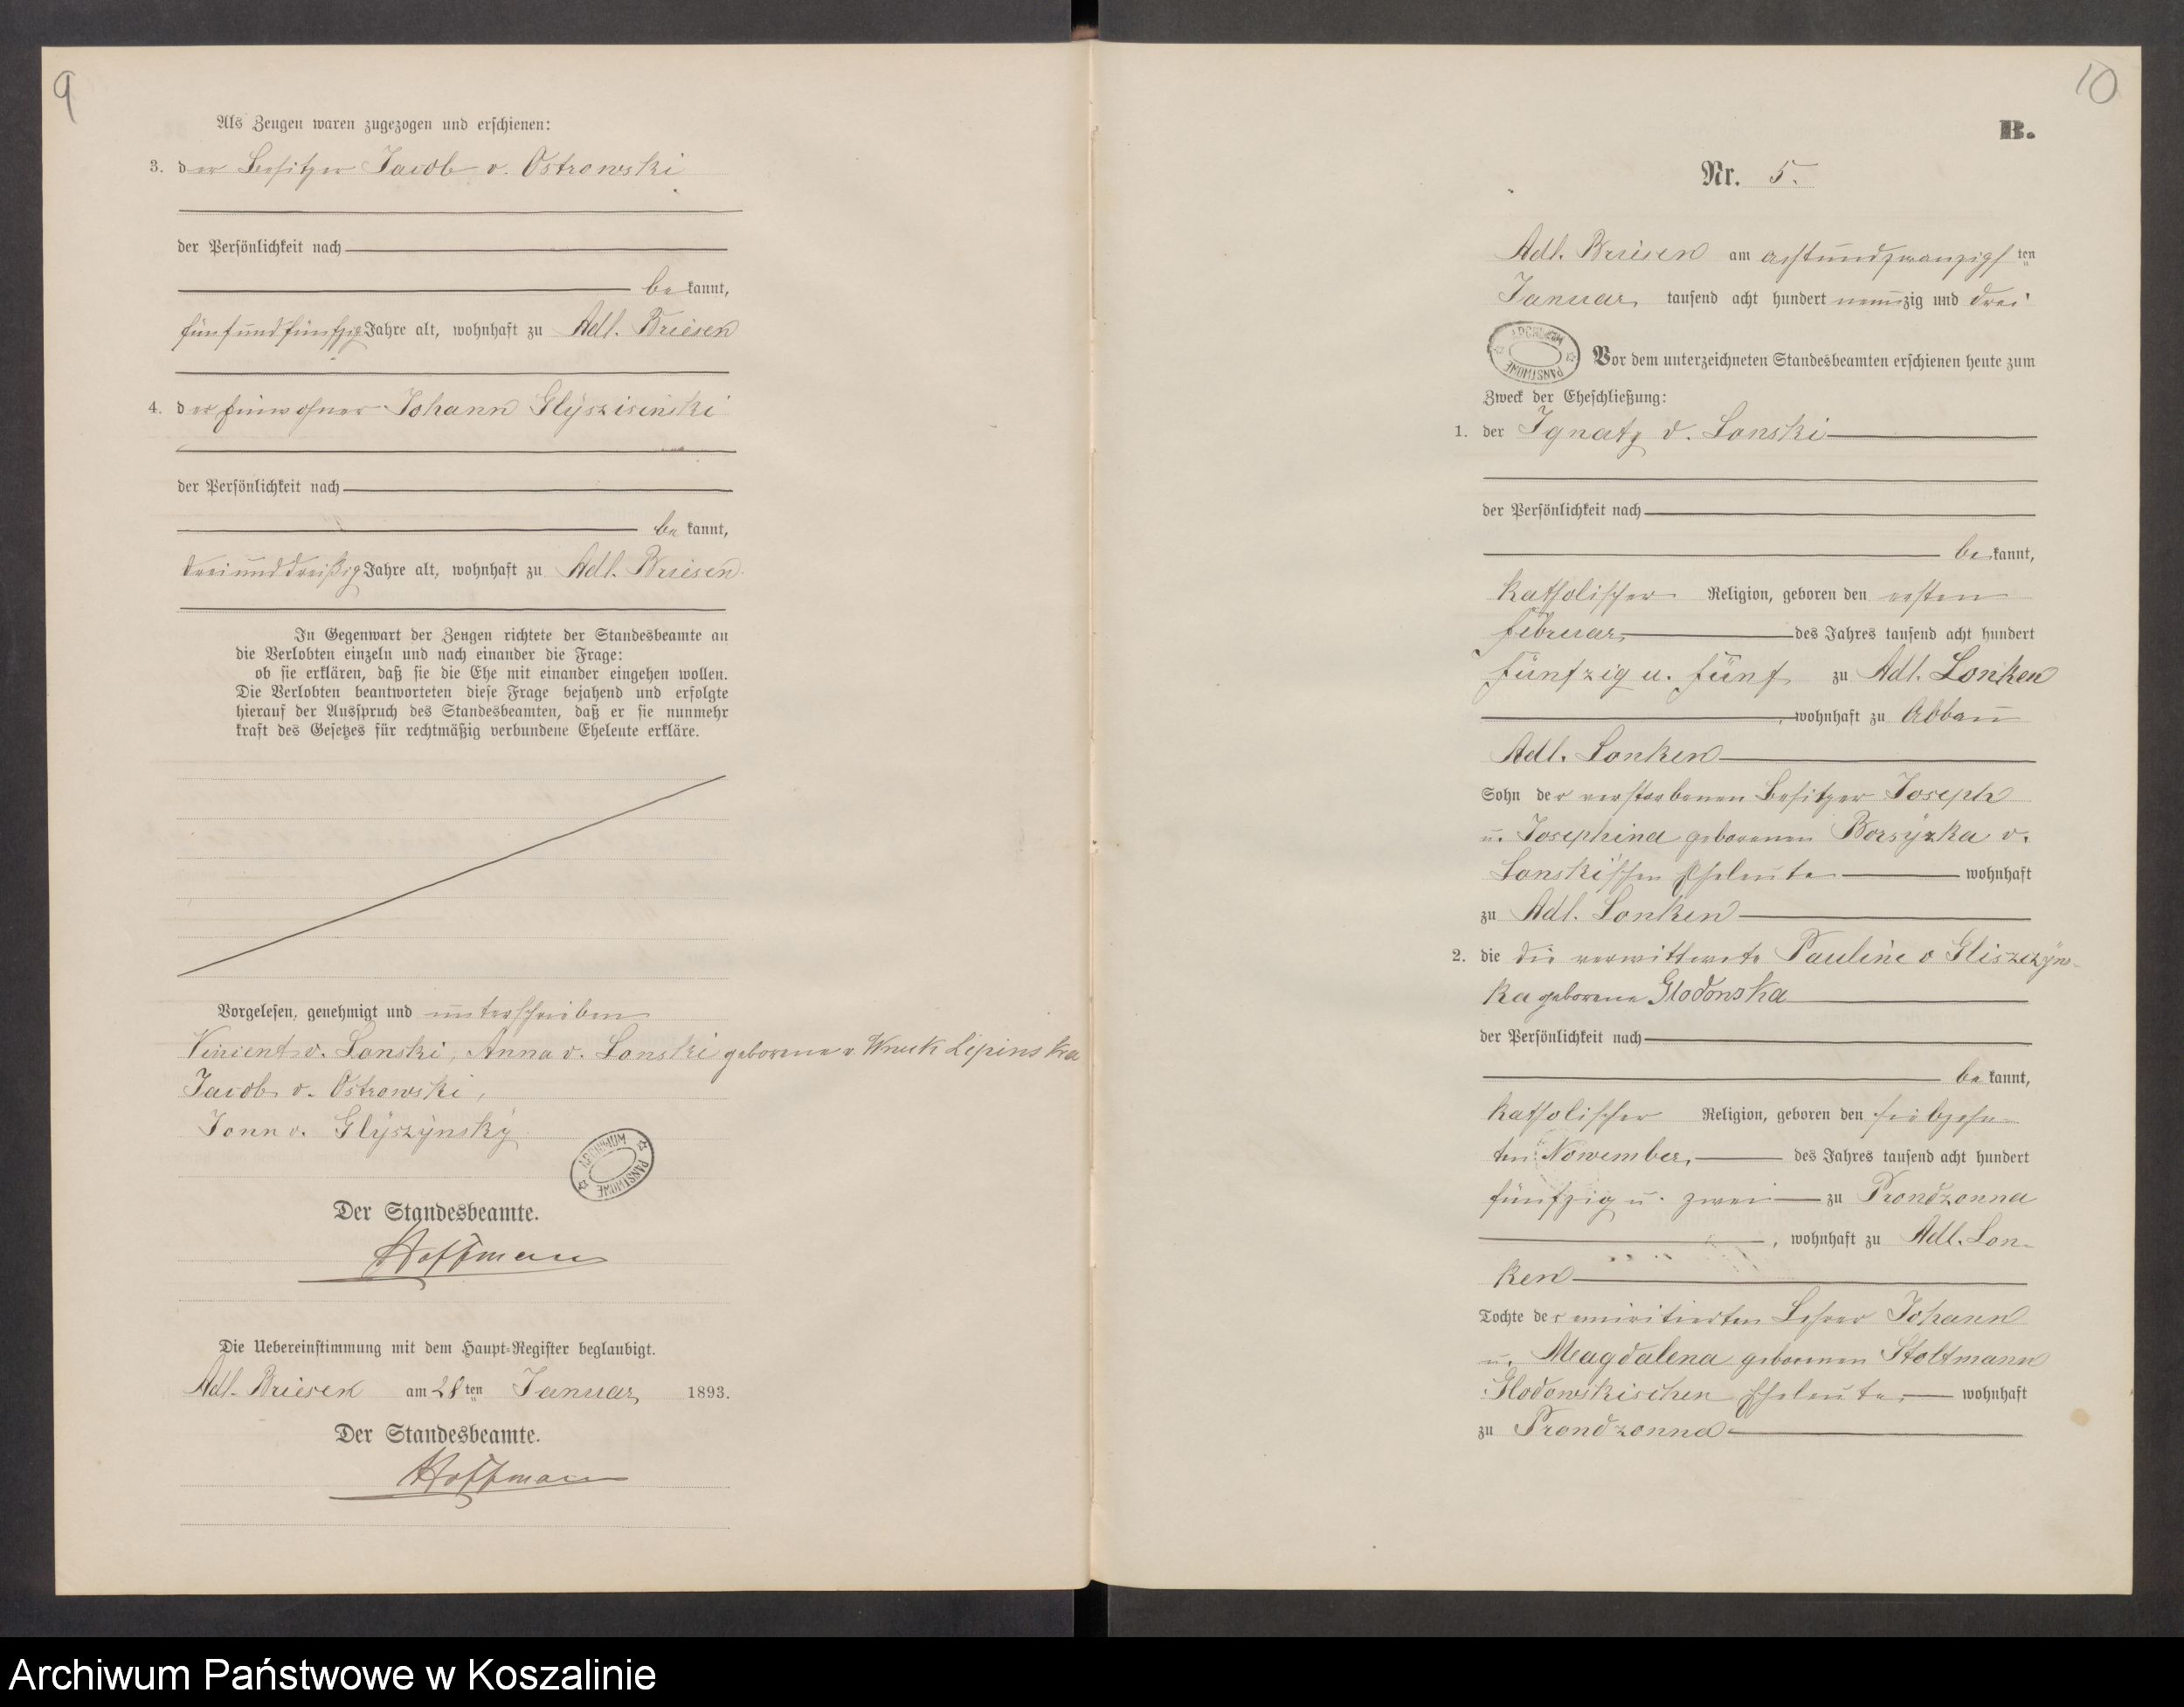 9
Als Zeugen waren zugezogen und erschienen:
3. der Besitzer Jacob v. Ostrowski
der Persönlichkeit nach
be kannt,
fünfundfünfzig Jahre alt, wohnhaft zu Adl. Briesen
4. der Einwohner Johann Glyszisinski
der Persönlichkeit nach
be kannt,
dreiunddreißig Jahre alt, wohnhaft zu Adl. Briesen
In Gegenwart der Zeugen richtete der Standesbeamte an
die Verlobten einzeln und nach einander die Frage:
ob sie erklären, daß sie die Ehe mit einander eingehen wollen.
Die Verlobten beantworteten diese Frage bejahend und erfolgte
hierauf der Ausspruch des Standesbeamten, daß er sie nunmehr
kraft des Gesetzes für rechtmäßig verbundene Eheleute erkläre.
Vorgelesen, genehmigt und unterschrieben
Vinient v. Lonski, Anna v. Lonski geborene v Wnuk Lipinska
Jacob v. Ostrowski,
Jonn v. Glyszynsky
ARCHIWUM PAŃSTWOWE
Der Standesbeamte.
Hoffmann
Die Uebereinstimmung mit dem Haupt-Register beglaubigt.
Adl. Briesen am 28 ten Januar 1893.
Der Standesbeamte.
Hoffmann
10
B.
Nr. 5.
Adl. Briesen am achtundzwanzigs ten
Januar tausend acht hundert neunzig und drei
ARCHIWUM PAŃSTWOWE
Vor dem unterzeichneten Standesbeamten erschienen heute zum
Zweck der Eheschließung:
1. der Ignatz v. Lonski
der Persönlichkeit nach
be kannt,
katholischer Religion, geboren den ersten
Februar, des Jahres tausend acht hundert
fünfzig u. fünf zu Adl. Lonken
, wohnhaft zu Abbau
Adl. Lonken
Sohn der verstorbenen Besitzer Joseph
u. Josephina geborenen Borsyzka v.
Lonski'schen Eheleute wohnhaft
zu Adl. Lonken
2. die die verwittwete Pauline v Gliszczyns-
ka geborene Glodowska
der Persönlichkeit nach
be kannt,
katholischer Religion, geboren den siebzehn-
ten November, des Jahres tausend acht hundert
fünfzig u. zwei zu Prondzonna
, wohnhaft zu Adl. Lon-
ken
Tochte der emiritierten Lehrer Johann
u. Magdalena geborenen Stoltmann
Glodowskischen Eheleute, wohnhaft
zu Prondzonna
Archiwum Państwowe w Koszalinie